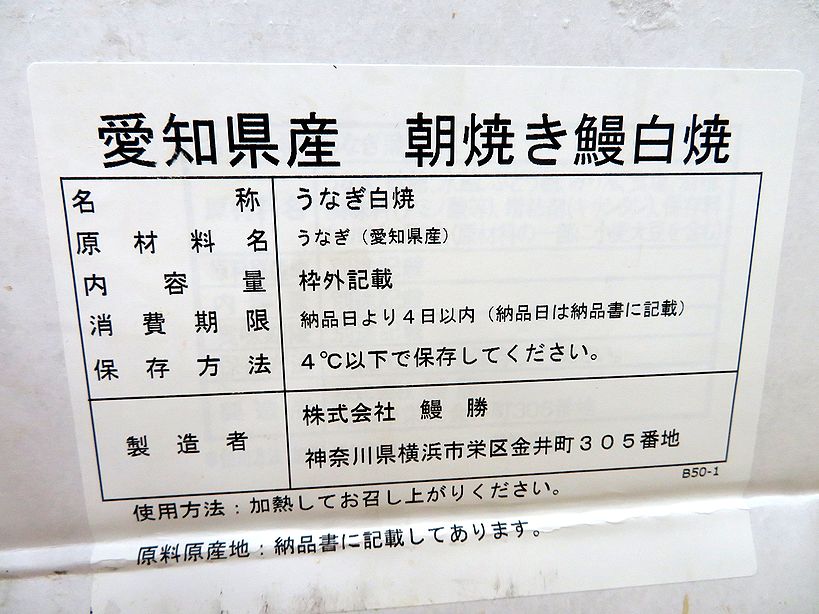 愛知県産　朝焼き鰻白焼
名称　うなぎ白焼
原材料名　うなぎ（愛知県産）
内容量　枠外記載
消費期限　納品日より４日以内（納品日は納品書に記載）
保存方法　４℃以下で保存してください。
製造者　株式会社　鰻　勝
神奈川県横浜市栄区金井町３０５番地
B50-1
使用方法：加熱してお召し上がりください。
原料原産地：納品書に記載してあります。